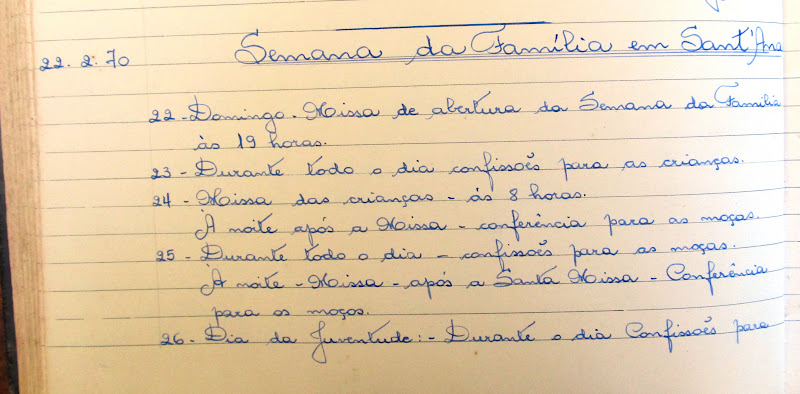 22. 2. 70 Semana da Família em Sant'Ana
22 - Domingo. Missa de abertura da Semana da Familia
às 19 horas.
23 - Durante todo o dia confissões para as crianças.
24 - Missa das crianças - ás 8 horas.
À noite após a Missa - conferência para as moças.
25 - Durante todo o dia - confissões para as moças.
À noite - Missa - após a Santa Missa - Conferência
para os moços.
26. Dia da Juventude: - Durante o dia Confissões para